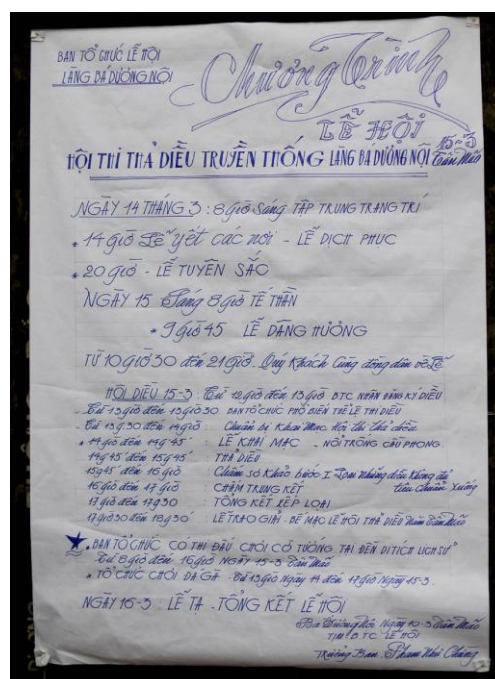 BAN TỔ CHỨC LỄ HỘI
LÀNG BÁ DƯƠNG NỘI
Chương Trình
LỄ HỘI
15-3
Tân Mão
HỘI THI THẢ DIỀU TRUYỀN THỐNG LÀNG BÁ DƯƠNG NỘI
NGÀY 14 THÁNG 3 : 8 giờ Sáng TẬP TRUNG TRANG TRÍ
* 14 giờ Lễ yết các nơi - LỄ DỊCH PHỤC
* 20 giờ - LỄ TUYÊN SẮC
NGÀY 15 Sáng 8 giờ TẾ THẦN
* 9 giờ 45 LỄ DÂNG HƯƠNG
TỪ 10 giờ 30 đến 21 giờ. Quý Khách Cùng đồng dân về Lễ
HỘI DIỀU 15-3 : Từ 12 giờ đến 13 giờ BTC NHẬN ĐĂNG KÝ DIỀU
- Từ 13 giờ đến 13 giờ 30 BAN TỔ CHỨC PHỔ BIẾN THỂ LỆ THI DIỀU
- Từ 13 giờ 30 đến 14 giờ : Chuẩn bị Khai Mạc hội thi thả diều
* 14 giờ đến 14g 45' : LỄ KHAI MẠC - NỔI TRỐNG CẦU PHONG
14g 45' đến 15g 45' : THẢ DIỀU
15g 45' đến 16 giờ : Chấm sơ Khảo bước I Loại những diều không đủ tiêu chuẩn xuống
16 giờ đến 17 giờ : CHẤM TRUNG KẾT
17 giờ đến 17g 30 : TỔNG KẾT XẾP LOẠI
17 giờ 30 đến 18g 30' : LỄ TRAO GIẢI - BẾ MẠC LỄ HỘI THẢ DIỀU Năm Tân Mão
* BAN TỔ CHỨC CÓ THI ĐẤU CHƠI CỜ TƯỚNG TẠI ĐỀN DI TÍCH LỊCH SỬ
Từ 8 giờ đến 16 giờ NGÀY 15-3
* TỔ CHỨC CHƠI ĐÁ GÀ Từ 13 giờ Ngày 14 đến 17 giờ Ngày 15-3
NGÀY 16-3 : LỄ TẠ - TỔNG KẾT LỄ HỘI
Bá Dương Nội Ngày 10-3 Tân Mão
T/M B.T.C LỄ HỘI
Trưởng Ban